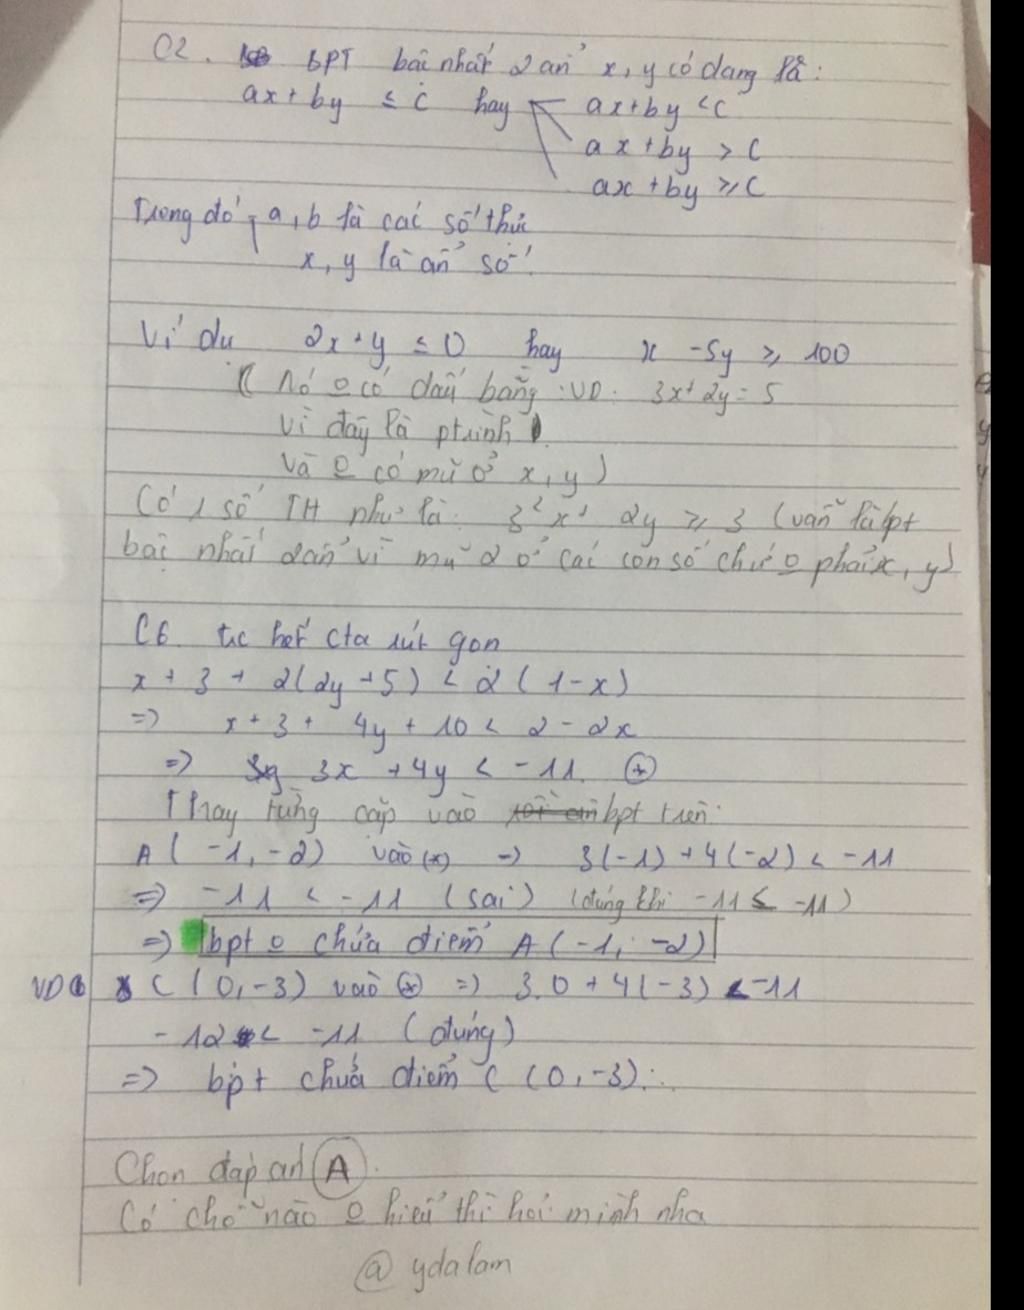 C2. BPT bậc nhất 2 ẩn x, y có dạng là:
ax + by ≤ c hay ax + by < c
ax + by > c
ax + by ≥ c
Trong đó: a, b là các số thực
x, y là ẩn số
Ví dụ 2x + y ≤ 0 hay x - 5y ≥ 100
( Nó 0 có dấu bằng: VD: 3x + 2y = 5
vì đây là ptrình
và 0 có mũ ở x, y )
Có 1 số TH như là: 3²x + 2y ≥ 3 (vẫn là pt
bậc nhất 2 ẩn vì mũ 2 ở các con số chứ 0 phải x, y)
C6 trc hết cta rút gọn
x + 3 + 2(2y + 5) < 2(1 - x)
=> x + 3 + 4y + 10 < 2 - 2x
=> 3x + 4y < -11. (*)
Thay từng cặp vào bpt trên:
A(-1, -2) vào (*) → 3(-1) + 4(-2) < -11
=> -11 < -11 (sai) (đúng khi -11 ≤ -11)
=> bpt 0 chứa điểm A(-1; -2)
VD C(0, -3) vào (*) => 3.0 + 4(-3) < -11
-12 < -11 (đúng)
=> bpt chứa điểm C(0, -3)...
Chọn đáp án A.
Có chỗ nào 0 hiểu thì hỏi mình nha
@ydalam